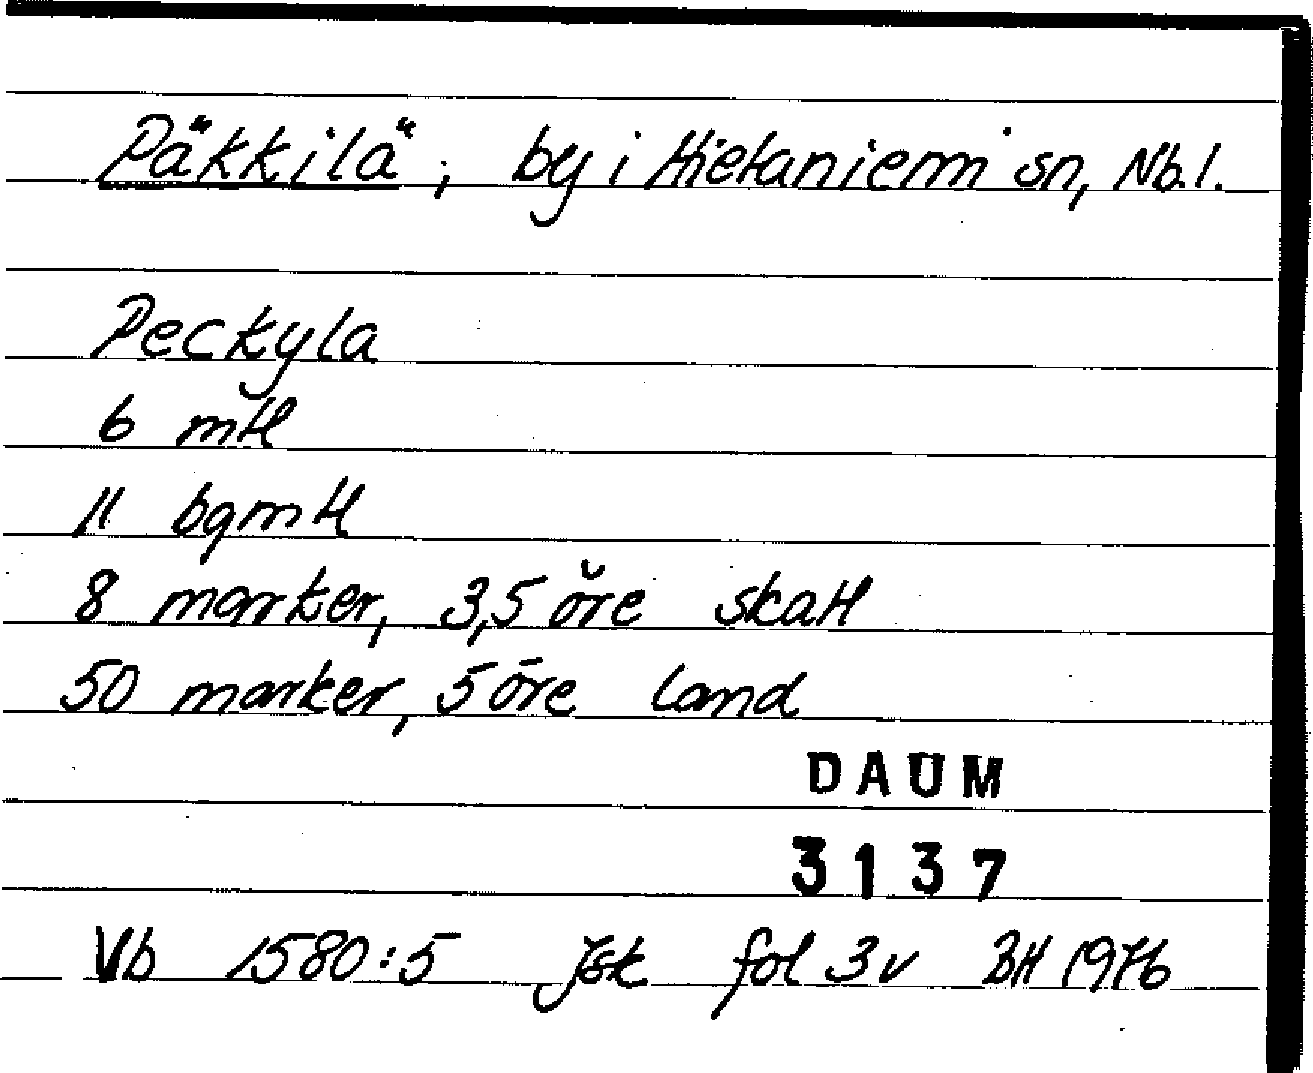 Päkkilä, by i Hietaniemi sn, Nb.l.
Peckyla
6 mtl
11 bgmtl
8 marker, 3,5 öre skatt
50 marker, 5 öre land
DAUM
3137
Vb 1580:5 Jsk fol 3v BH 1976